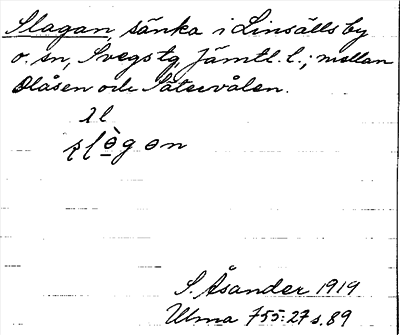 Slagan, sänka i Linsälls by
o. sn, Svegs tg, Jämtl. l.; mellan
Olåsen och Sätervålen.
S. Åsander 1919
Ulma 755:27 s. 89